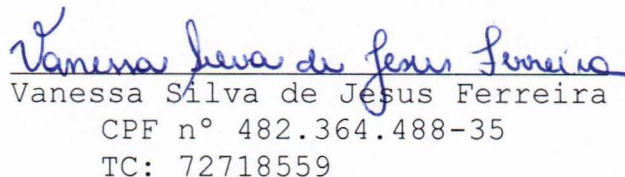 Vanessa Silva de Jesus Ferreira
Vanessa Silva de Jesus Ferreira
CPF nº 482.364.488-35
TC: 72718559